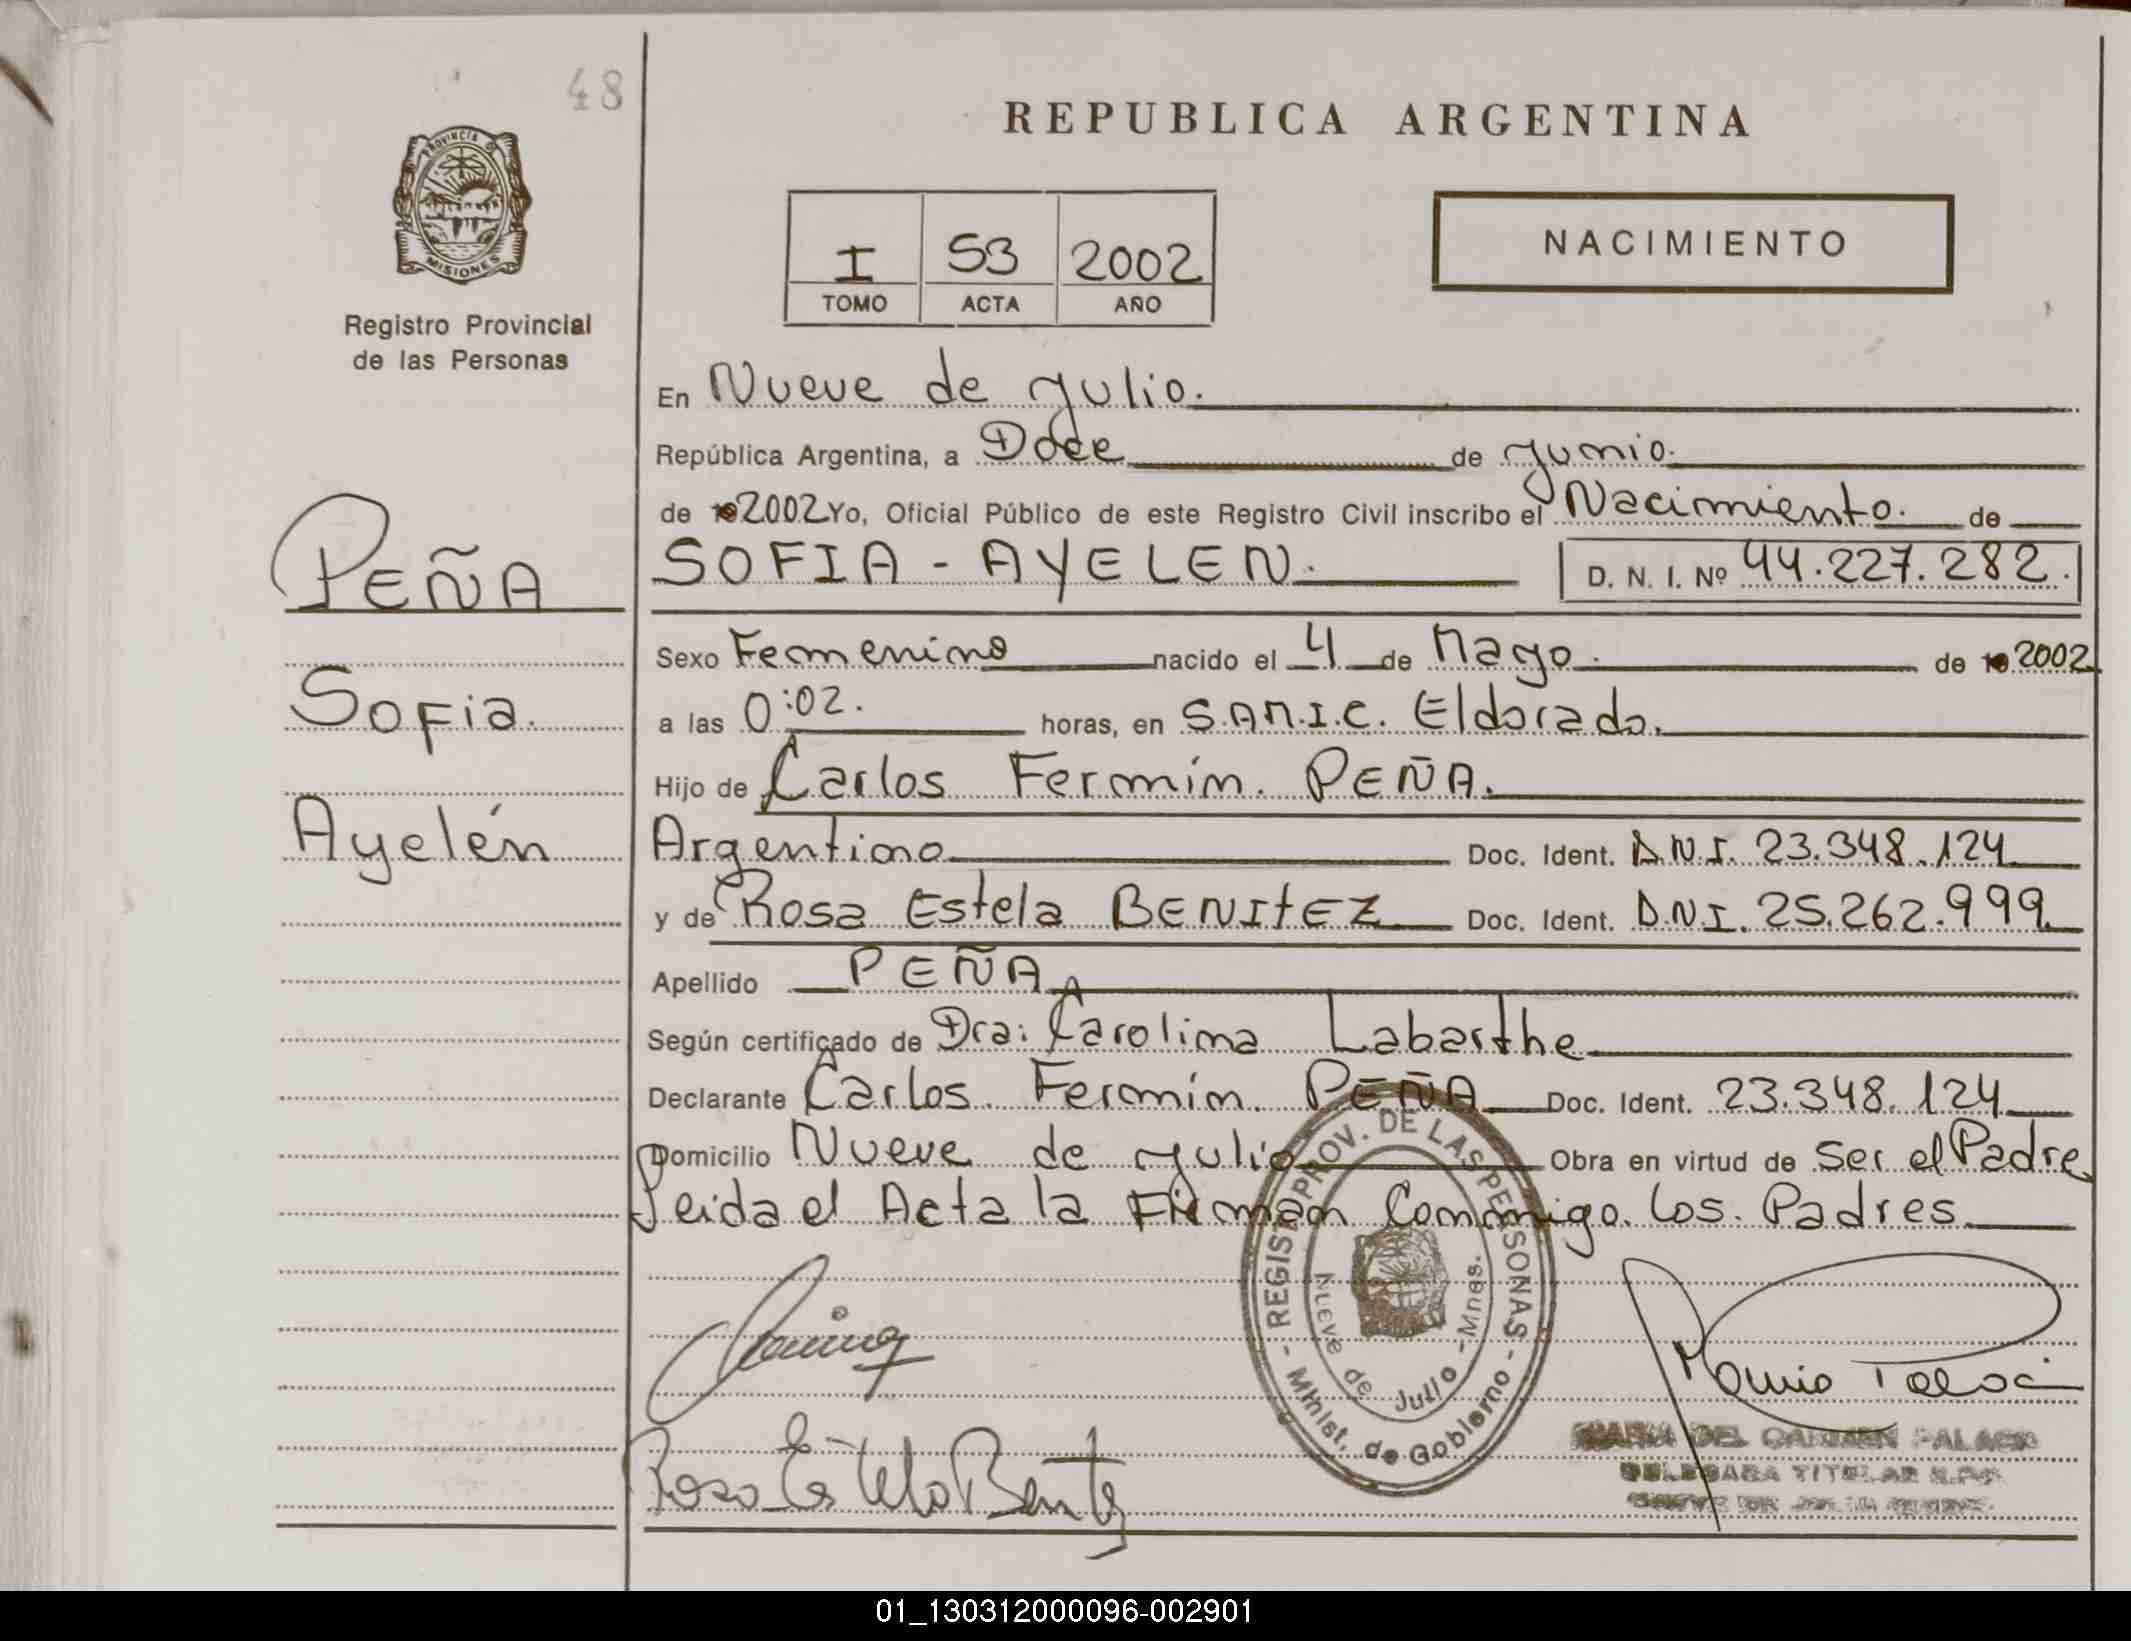 48
PROVINCIA DE
MISIONES
Registro Provincial
de las Personas
REPUBLICA ARGENTINA
I 53 2002
TOMO ACTA AÑO
NACIMIENTO
En Nueve de Julio.
República Argentina, a Doce de Junio.
de 19 2002 Yo, Oficial Público de este Registro Civil inscribo el Nacimiento. de
SOFIA - AYELEN. D. N. I. Nº 44.227.282.
PEÑA
Sofia.
Ayelén
Sexo Femenino nacido el 4 de Mayo. de 19 2002
a las 0:02. horas, en S.A.M.I.C. Eldorado.
Hijo de Carlos Fermín. PEÑA.
Argentino Doc. Ident. D.N.I. 23.348.124
y de Rosa Estela BENITEZ Doc. Ident. D.N.I. 25.262.999.
Apellido PEÑA
Según certificado de Dra: Carolina Labarthe
Declarante Carlos. Fermín. PEÑA Doc. Ident. 23.348.124
Domicilio Nueve de Julio Obra en virtud de Ser el Padre
Leida el Acta la Firman Conmigo. los. Padres
- REGIST. PROV. DE LAS PERSONAS -
Minist. de Gobierno
Nueve de Julio - Mnes.
Rosa Estela Benitez
MARIA DEL CARMEN PALACIO
DELEGADA TITULAR R.P.P.
01_130312000096-002901